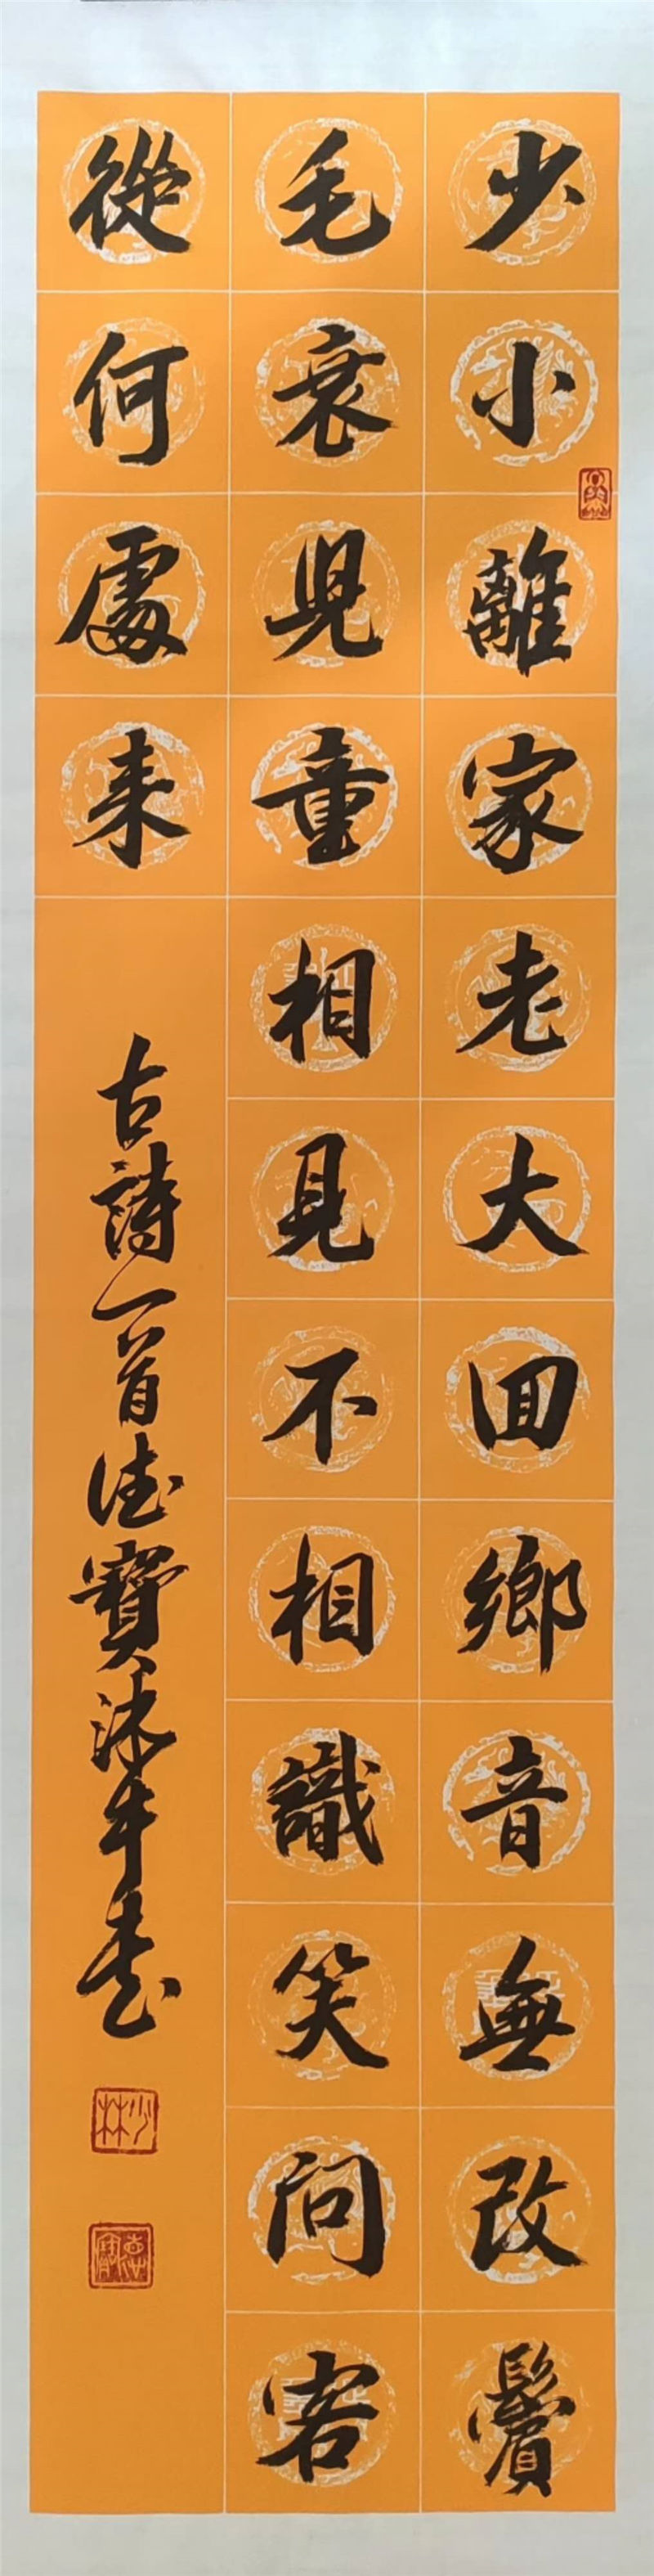 少小離家老大回鄉音無改鬢
毛衰兒童相見不相識笑问客
從何處来
古詩一首德寶沐手書
少林